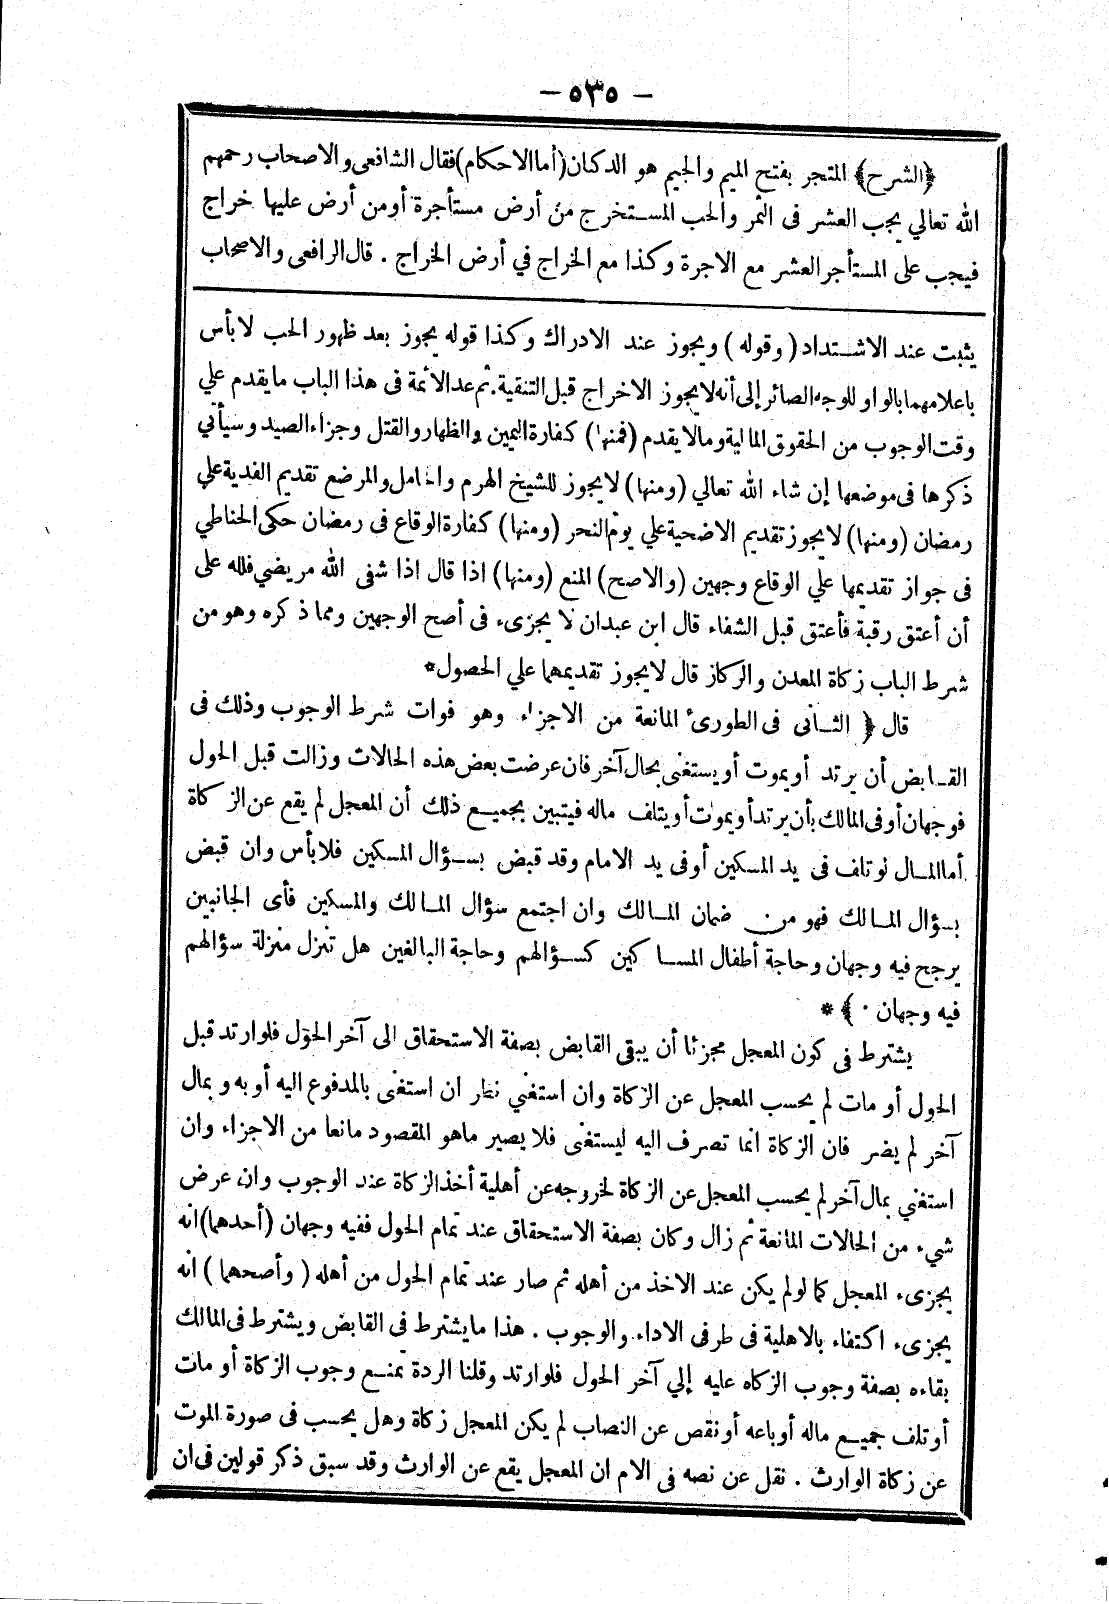 — ٥٣٥ —
﴿الشرح﴾ المتجر بفتح الميم والجيم هو الدكان (أما الاحكام) فقال الشافعى والاصحاب رحمهم
الله تعالي يجب العشر فى الثمر والحب المستخرج من أرض مستأجرة أو من أرض عليها خراج
فيجب على المستأجر العشر مع الاجرة وكذا مع الخراج في أرض الخراج . قال الرافعى والاصحاب
يثبت عند الاشتداد (وقوله) ويجوز عند الادراك وكذا قوله يجوز بعد ظهور الحب لا بأس
باعلامهما بالواو للوجه الصائر إلى أنه لا يجوز الاخراج قبل التنقية . ثم عد الائمة فى هذا الباب ما يقدم علي
وقت الوجوب من الحقوق المالية وما لا يقدم (فمنها) كفارة اليمين والظهار والقتل وجزاء الصيد وسيأتي
ذكرها فى موضعها إن شاء الله تعالي (ومنها) لا يجوز للشيخ الهرم والحامل والمرضع تقديم الفدية علي
رمضان (ومنها) لا يجوز تقديم الاضحية علي يوم النحر (ومنها) كفارة الوقاع فى رمضان حكى الحناطي
فى جواز تقديمها علي الوقاع وجهين (والاصح) المنع (ومنها) اذا قال اذا شفى الله مريضي فلله على
أن أعتق رقبة فأعتق قبل الشفاء قال ابن عبدان لا يجزىء فى أصح الوجهين ومما ذكره وهو من
شرط الباب زكاة المعدن والركاز قال لا يجوز تقديمهما علي الحصول*
قال ﴿ الثـانى فى الطورىء المانعة من الاجزاء وهو فوات شرط الوجوب وذلك فى
القـابض أن يرتد أو يموت أو يستغنى بحال آخر فان عرضت بعض هذه الحالات وزالت قبل الحول
فوجهان أو فى المالك بأن يرتد أو يموت أو يتلف ماله فيتبين بجميع ذلك أن المعجل لم يقع عن الزكاة
أما المـال لو تلف فى يد المسكين أو فى يد الامام وقد قبض بسـؤال المسكين فلا بأس وان قبض
بسؤال المـالك فهو من ضمان المـالك وان اجتمع سؤال المـالك والمسكين فأى الجانبين
يرجح فيه وجهان وحاجة أطفال المسـاكين كسـؤالهم وحاجة البالغين هل تنزل منزلة سؤالهم
فيه وجهان . ﴾ *
يشترط فى كون المعجل مجزئا أن يبقى القابض بصفة الاستحقاق الى آخر الحول فلو ارتد قبل
الحول أو مات لم يحسب المعجل عن الزكاة وان استغني نظر ان استغنى بالمدفوع اليه أو به وبمال
آخر لم يضر فان الزكاة انما تصرف اليه ليستغنى فلا يصير ماهو المقصود مانعا من الاجزاء وان
استغني بمال آخر لم يحسب المعجل عن الزكاة لخروجه عن أهلية أخذ الزكاة عند الوجوب وان عرض
شيء من الحالات المانعة ثم زال وكان بصفة الاستحقاق عند تمام الحول ففيه وجهان (أحدهما) انه
يجزىء المعجل كما لو لم يكن عند الاخذ من أهله ثم صار عند تمام الحول من أهله (وأصحهما) انه
يجزىء اكتفاء بالاهلية فى طرفى الاداء والوجوب . هذا ما يشترط فى القابض ويشترط فى المالك
بقاءه بصفة وجوب الزكاه عليه إلي آخر الحول فلو ارتد وقلنا الردة تمنـع وجوب الزكاة أو مات
أو تلف جميـع ماله أو باعه أو نقص عن النصاب لم يكن المعجل زكاة وهل يحسب فى صورة الموت
عن زكاة الوارث . نقل عن نصه فى الام ان المعجل يقع عن الوارث وقد سبق ذكر قولين فى ان